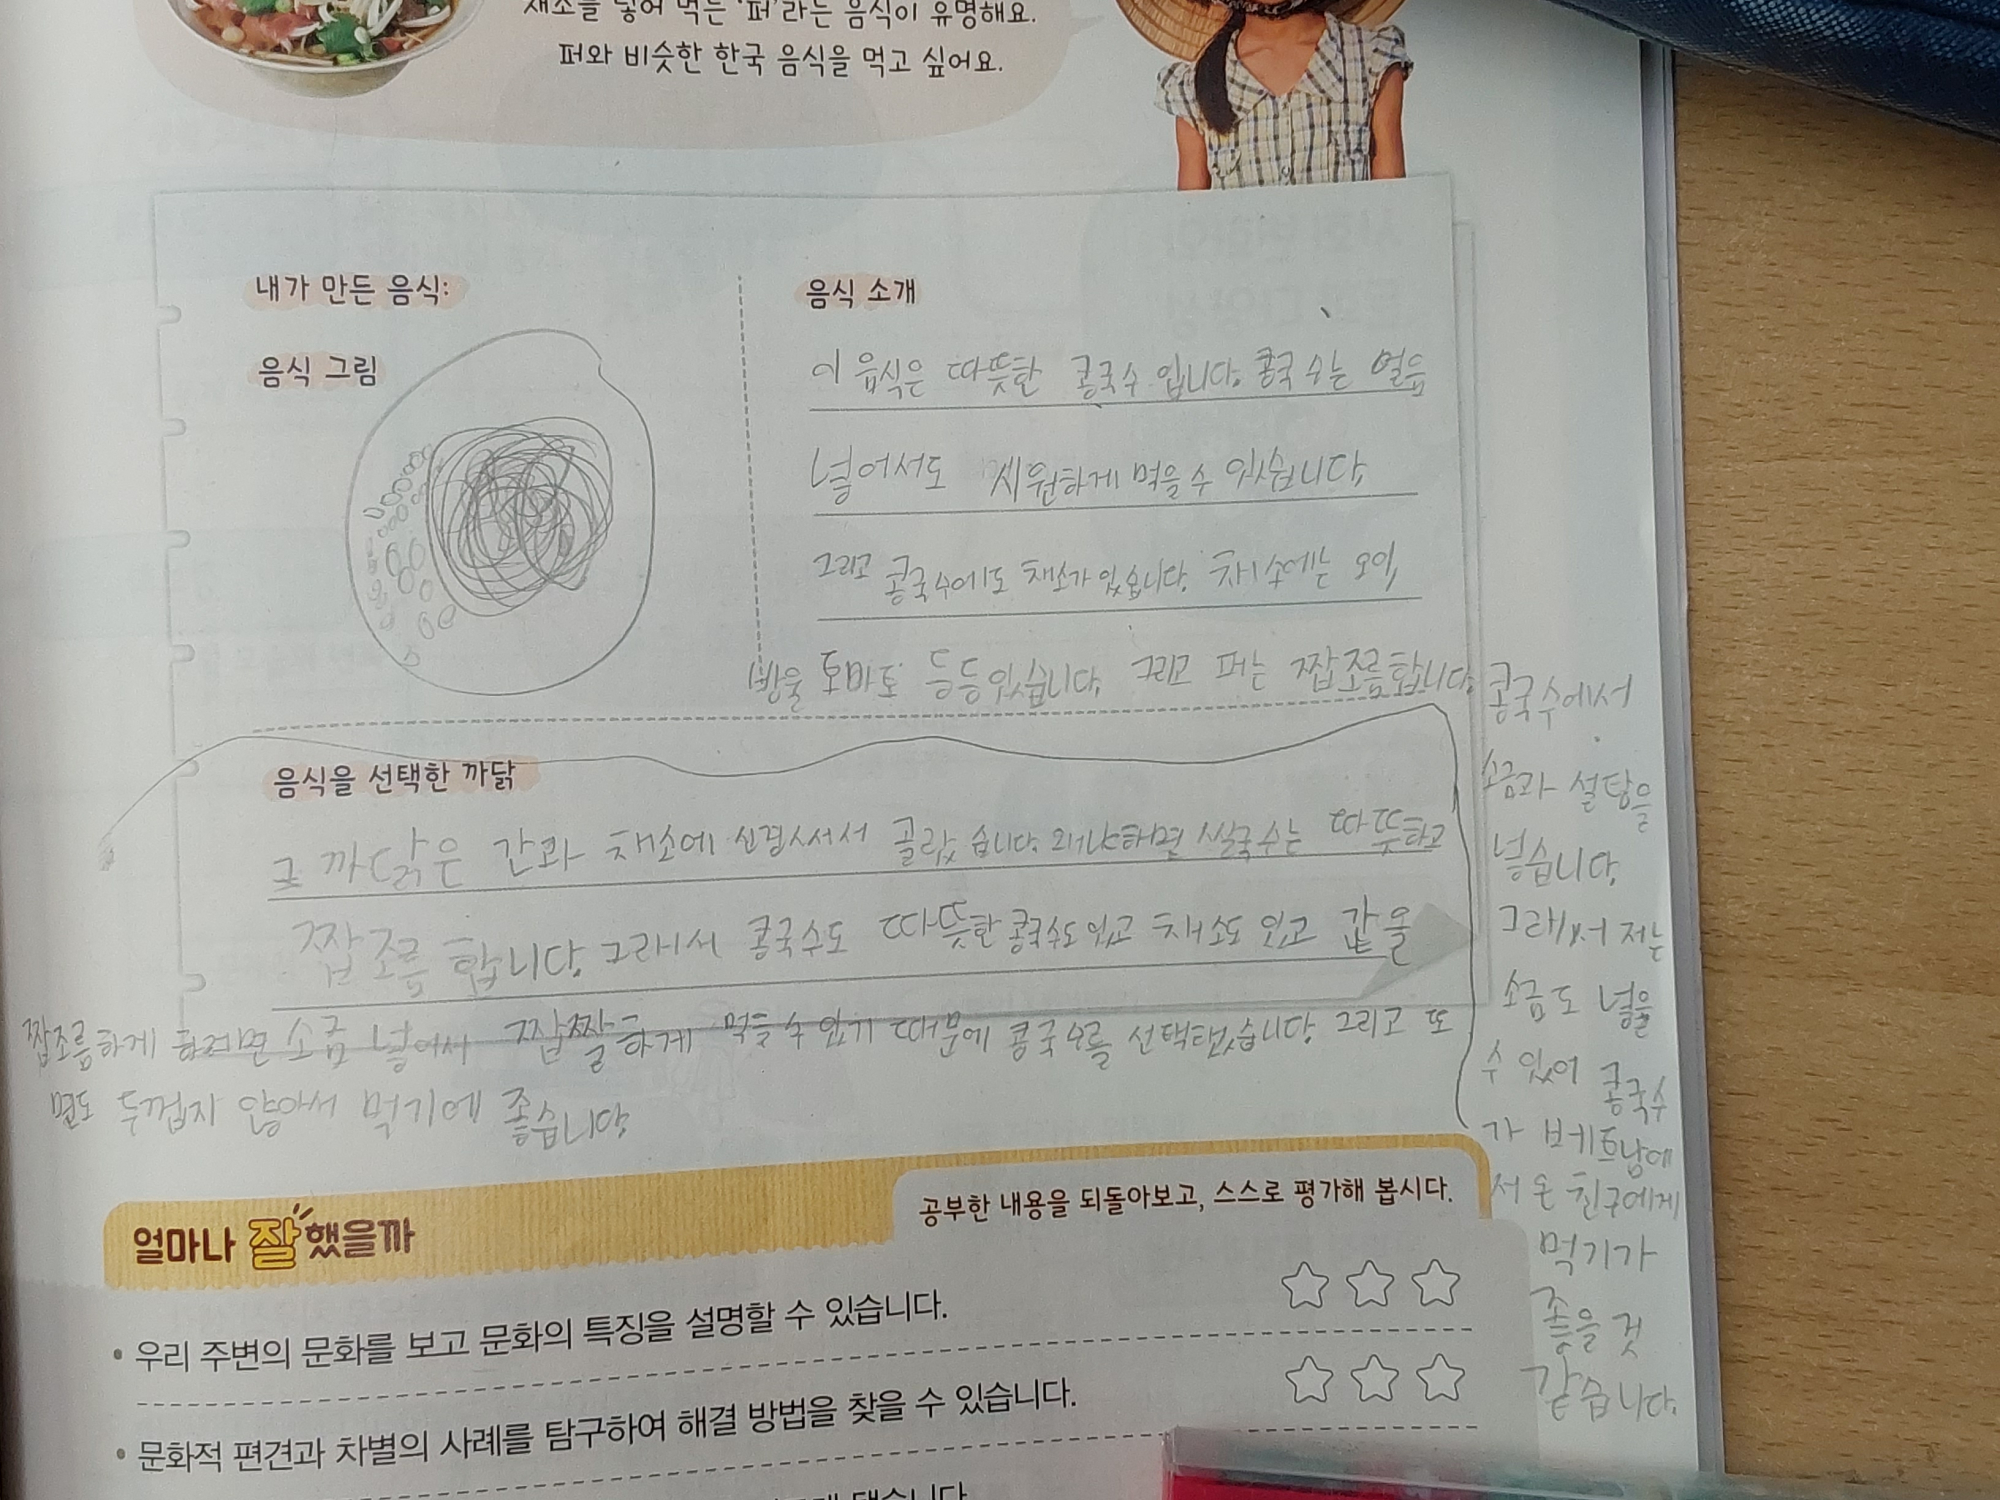 채소를 넣어 먹는 '퍼'라는 음식이 유명해요.
퍼와 비슷한 한국 음식을 먹고 싶어요.
내가 만든 음식:
음식 그림
음식 소개
이 음식은 따뜻한 콩국수 입니다. 콩국수는 얼음
넣어서도 시원하게 먹을 수 있습니다.
그리고 콩국수에도 채소가 있습니다. 채소에는 오이,
방울 토마토 등등 있습니다. 그리고 퍼는 짭조름합니다.
콩국수에서
소금과 설탕을
넣습니다.
그래서 저는
소금도 넣을
수 있어 콩국수
가 베트남에
서 온 친구에게
먹기가
좋을 것
같습니다.
음식을 선택한 까닭
그 까닭은 간과 채소에 신경써서 골랐습니다. 왜냐하면 쌀국수는 따뜻하고
짭조름 합니다. 그래서 콩국수도 따뜻한 콩국수도 있고 채소도 있고 같을
짭조름하게 하려면 소금 넣어서 짭짤하게 먹을 수 있기 때문에 콩국수를 선택했습니다. 그리고 또
면도 두껍지 않아서 먹기에 좋습니다.
얼마나 잘했을까
공부한 내용을 되돌아보고, 스스로 평가해 봅시다.
• 우리 주변의 문화를 보고 문화의 특징을 설명할 수 있습니다.
• 문화적 편견과 차별의 사례를 탐구하여 해결 방법을 찾을 수 있습니다.